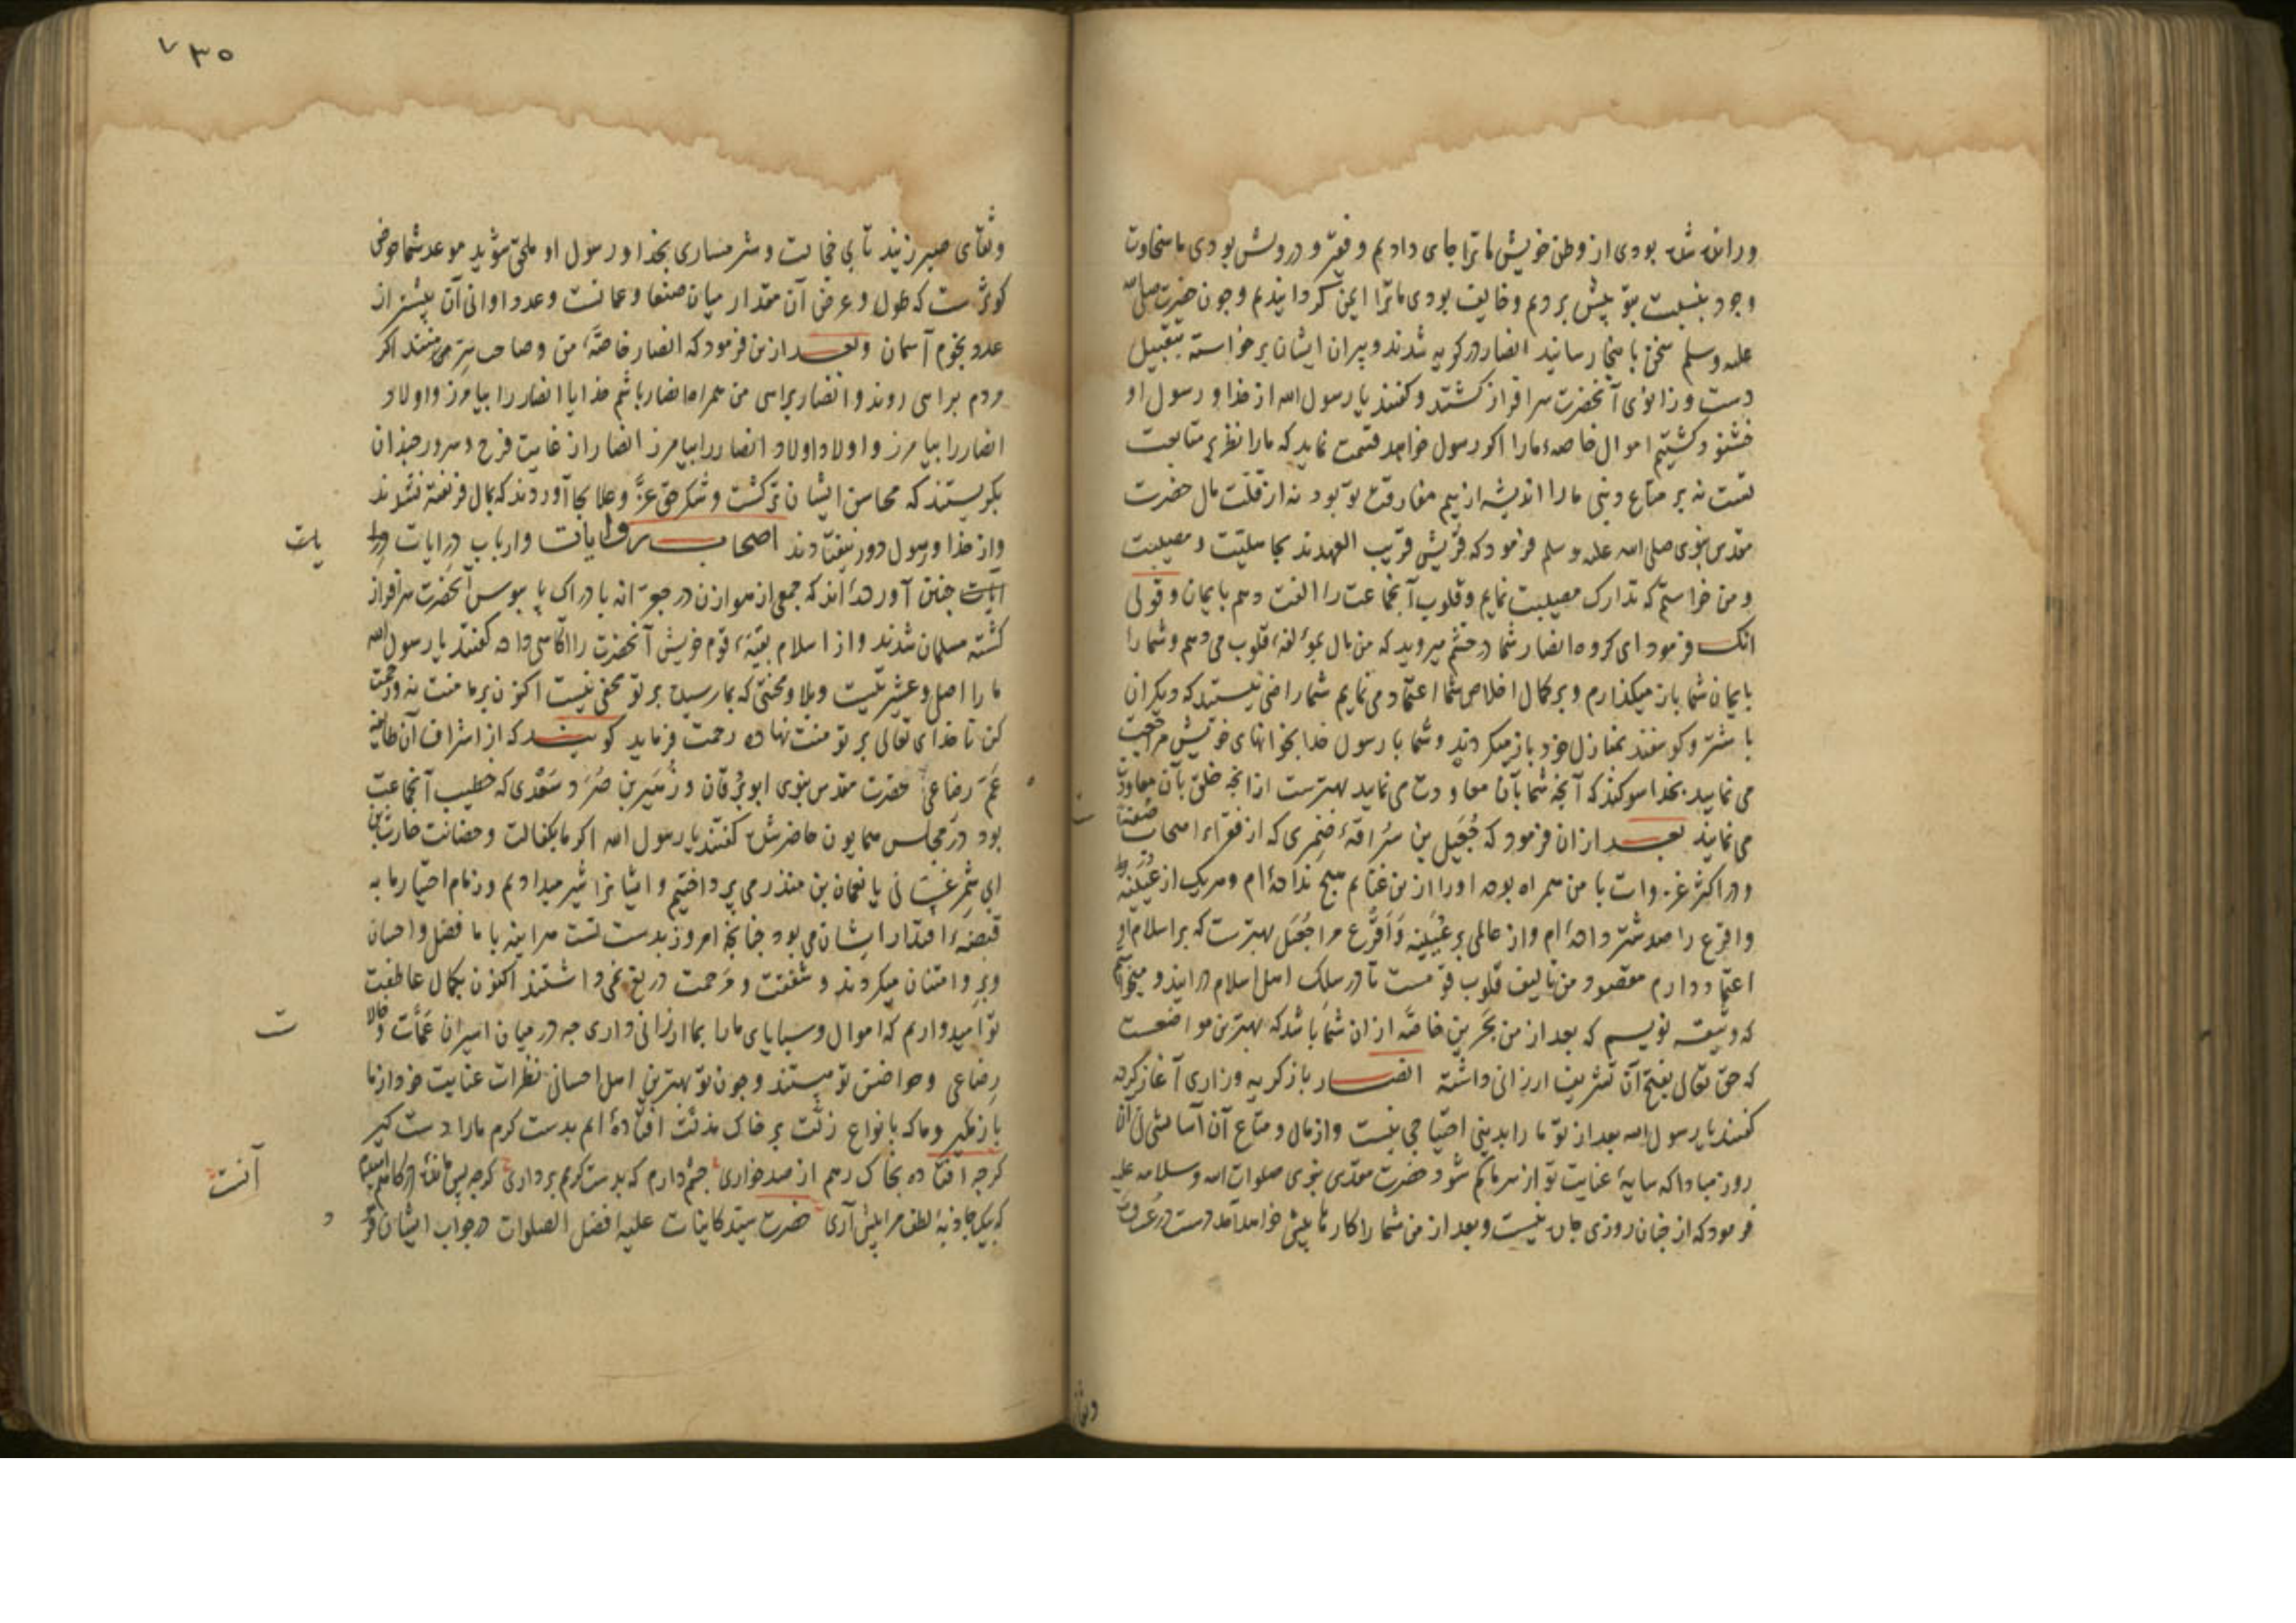 ورانده شده بودی از وطن خویش ما ترا جای دادیم و فقیر و درویش بودی ما سخاوت
وجود بنسبت بتو پیش بردیم و خایف بودی ما ترا ایمن کردانیدیم و چون حضرت صلی الله
علیه وسلم سخن باینجا رسانید انصار در کریه شدند و پیران ایشان برخواسته بتقبیل
دست و زانوی آنحضرت سرافراز کشتند و کفتند یا رسول الله از خدا و رسول او
خشنود کشتیم اموال خاصهٔ ما را اکر رسول خواهد قسمت نماید که ما را نظر بر متابعت
تست نه بر متاع دنیی ما را اندیشه از بیم مفارقت تو بود نه از قلت مال حضرت
مقدس نبوی صلی الله علیه وسلم فرمود که قریش قریب العهدند بجاهلیت و مصیبت
و من خواستم که تدارک مصیبت نمایم و قلوب آنجماعت را الفت دهم بایمان و قولی
آنک فرمود ای کروه انصار شما در خشم میروید که من مال بمؤلفهٔ قلوب می دهم و شما را
بایمان شما باز میکذارم و بر کمال اخلاص شما اعتماد می نمایم شما راضی نیستید که دیکران
با شتر و کوسفند بمنازل خود باز میکردند و شما با رسول خدا بخوانهای خویش مراجعت
می نمایید بخدا سوکند که آنچه شما بآن معاودت می نمایید بهترست از انچه خلق بآن معاودت
می نمایند بعد از ان فرمود که جُعَیل بن سُراقهٔ ضمری که از فقراء اصحاب صفه است
و در اکثر غزوات با من همراه بوده او را ازین غنایم هیچ نداده ام و هریک از عُیَینه
و اقرع را صد شتر داده ام و از عالمی بر عُیَینه و اَقرَع مرا جُعَیل بهترست که بر اسلام او
اعتماد دارم مقصود من تالیف قلوب قومست تا در سلک اهل اسلام در ایند و میخواهم
که وثیقه نویسم که بعد از من بحرین خاصّه از ان شما باشد که بهترین مواضعست
که حق تعالی بفتح آن تشریف ارزانی داشته انصار باز کریه و زاری آغاز کرده
کفتند یا رسول الله بعد از تو ما را بدنیی احتیاجی نیست و از مال و متاع آن آسایشی نی ان
روز مبادا که سایهٔ عنایت تو از سر ما کم شود حضرت مقدس نبوی صلوات الله وسلامه علیه
فرمود که از چنان روزی چاره نیست و بعد از من شما را کارها پیش خواهد آمد دست در عروة
۷۳۵
وثقای صبر زنید تا بی خجالت و شرمساری بخدا و رسول او ملحق شوید موعد شما حوض
کوثرست که طول و عرض آن مقدار میان صنعا و عمانست و عدد اوانی آن بیشتر از
عدد نجوم آسمان و بعد ازین فرمود که انصار خاصّهٔ من و صاحب سِرّ من هستند اکر
مردم براهی روند و انصار براهی من همراه انصار باشم خدایا انصار را بیامرز و اولاد
انصار را بیامرز و اولاد اولاد انصار را بیامرز انصار از غایت فرح و سرور چندان
بکریستند که محاسن ایشان تر کشت و شکر حق عزّ وعلا بجا آوردند که بمال فریفته نشدند
و از خدا و رسول دور نیفتادند اصحاب روایات و ارباب درایات
چنین آورده اند که جمعی از هوازن در جعرانه بادراک پا بوس آنحضرت سرافراز
کشته مسلمان شدند و از اسلام بقیّهٔ قوم خویش آنحضرت را آکاهی داده کفتند یا رسول الله
ما را اصل و عشیرتیست و بلا و محنتی که بما رسیده بر تو مخفی نیست اکنون بر ما منت نه و رحمت
کن تا خدای تعالی بر تو منت نهاده رحمت فرماید کویند که از اشراف آن طایفه
عَمّ رضاعیِ حضرت مقدس نبوی ابو بُرقان و زُهَیر بن صُرَد سَعْدی که خطیب آنجماعت
بود در مجلس همایون حاضر شده کفتند یا رسول الله اکر ما بکفالت و حضانت حارث بن
ابی شِمر غسانی یا نعمان بن منذر می پرداختیم و ایشانرا شیر میدادیم و زمام اختیار ما به
قبضهٔ اقتدار ایشان می بود چنانچه امروز بدست تست هراینه با ما فضل و احسان
وبِر و امتنان میکردند و شفقت و مرحمت دریغ نمی داشتند اکنون بکمال عاطفت
تو امیدواریم که اموال و سبایای ما را بما ارزانی داری چه در میان اسیران عمّات و خالات
رضاعی و حواضن تو هستند و چون تو بهترین اهل احسانی نظرات عنایت خود از ما
باز مکیر و ما که بانواع زلّت بر خاک مذلّت افتاده ایم بدست کرم ما را دست کیر
کرچه افتاده بخاک رهم از صد خواری چشم دارم که بدست کرم برداری کرچه پس مانده
که بیک جاذبهٔ لطف مرا پیش آری حضرت سیّد کاینات علیه افضل الصلوات در جواب ایشان
یات
ت
آنست
وثقا